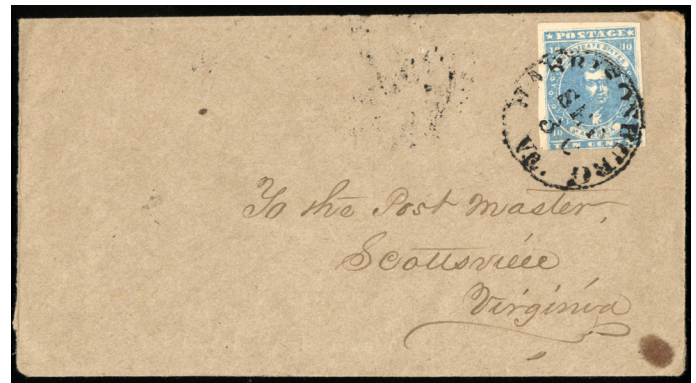 POSTAGE
10 10
10
TEN CEN
HARRISONBURG VA
To the Post Master,
Scottsville
Virginia